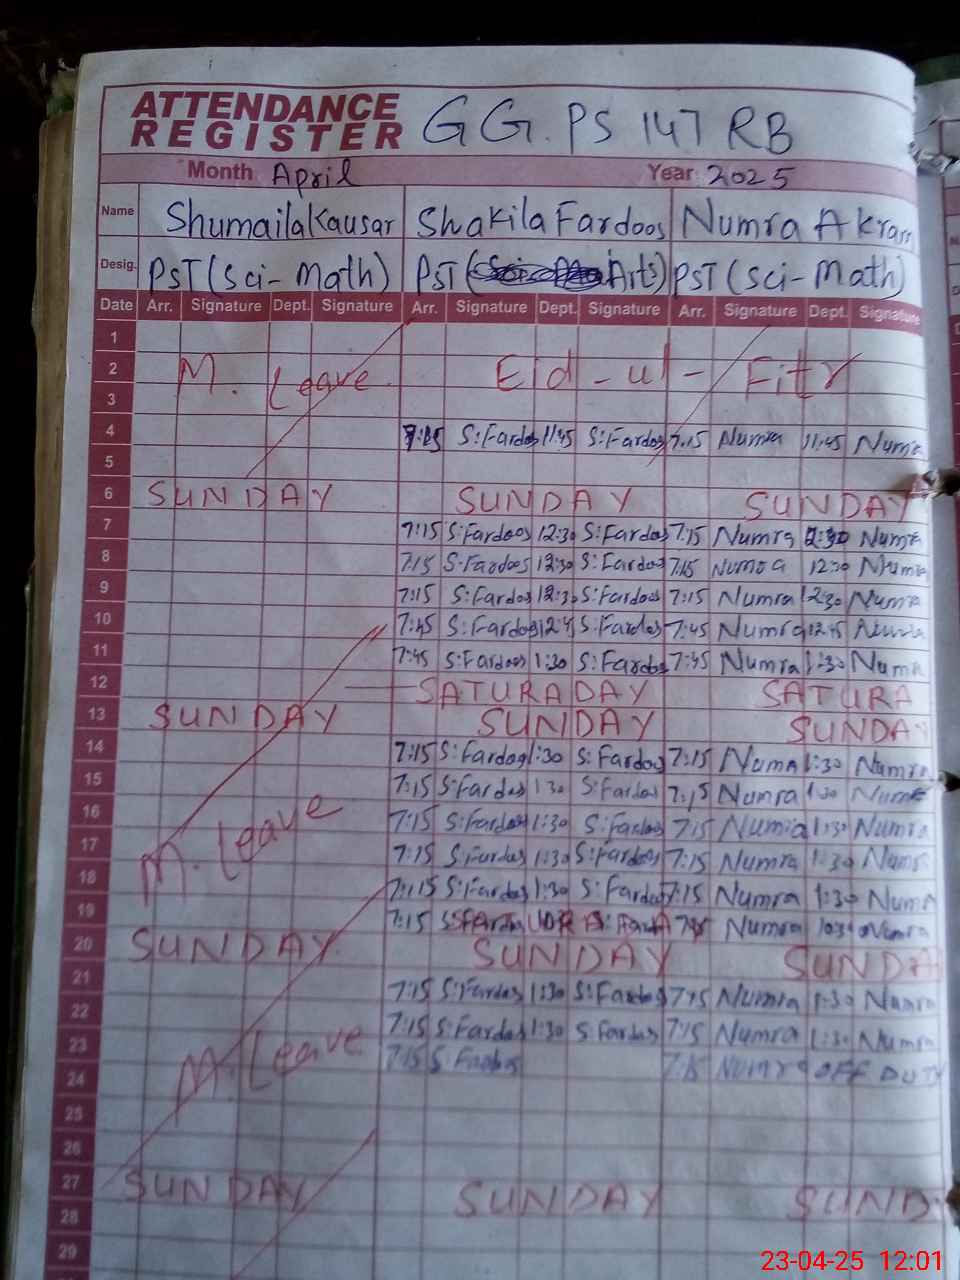 ATTENDANCE REGISTER GG.PS 147 RB
Month April Year 2025
Name Shumaila Kausar Shakila Fardoos Numra Akram
Desig. PST (Sci-Math) PST ( Arts) PST (Sci-Math)
Date Arr. Signature Dept. Signature Arr. Signature Dept. Signature Arr. Signature Dept. Signature
1
2 M. Leave Eid-ul-Fitr
3
4 7:15 S:Fardos 11:45 S:Fardos 7:15 Numra 11:45 Numra
5
6 SUNDAY SUNDAY SUNDAY
7 7:15 S:Fardoos 12:30 S:Fardos 7:15 Numra 12:30 Numra
8 7:15 S:Fardoos 12:30 S:Fardos 7:15 Numra 12:30 Numra
9 7:15 S:Fardos 12:30 S:Fardoos 7:15 Numra 12:30 Numra
10 7:45 S:Fardos 12:45 S:Fardos 7:45 Numra 12:45 Numra
11 7:45 S:Fardoos 1:30 S:Fardos 7:45 Numra 1:30 Numra
12 SATURADAY SATURA
13 SUNDAY SUNDAY SUNDAY
14 7:15 S:Fardos 1:30 S:Fardos 7:15 Numra 1:30 Numra
15 7:15 S:Fardos 1:30 S:Fardos 7:15 Numra 1:30 Numra
16 7:15 S:Fardos 1:30 S:Fardos 7:15 Numra 1:30 Numra
17 M. Leave 7:15 S:Fardos 1:30 S:Fardos 7:15 Numra 1:30 Numra
18 7:15 S:Fardos 1:30 S:Fardos 7:15 Numra 1:30 Numra
19 7:15 Numra 10:30 Numra
20 SUNDAY SUNDAY SUNDA
21 7:15 S:Fardos 1:30 S:Fardos 7:15 Numra 1:30 Numra
22 7:15 S:Fardos 1:30 S:Fardos 7:15 Numra 1:30 Numra
23 M. Leave 7:15 7:15 Numra OFF DUTY
24
25
26
27 SUNDAY SUNDAY SUND
28
29
23-04-25 12:01